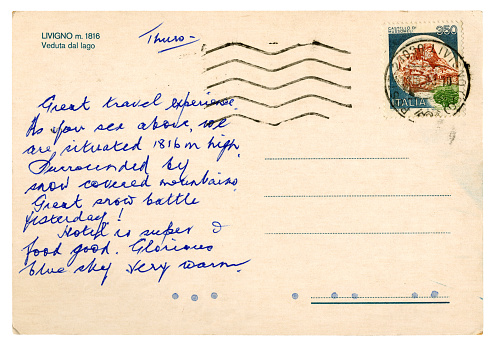 LIVIGNO m. 1816
Veduta dal lago
Thurs-
CASTELLO DI
350
ITALIA
Great travel experience.
As you see above, we
are situated 1816 m high.
Surrounded by
snow covered mountains.
Great snow battle
yesterday!
Hotel is super &
food good. Glorious
blue sky very warm.